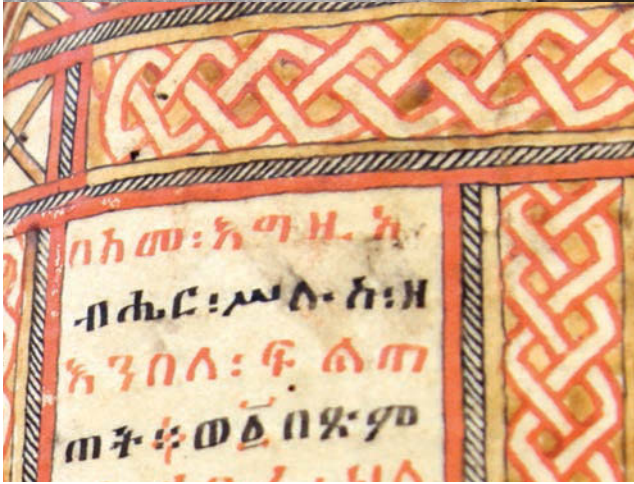 በአመ፡እግዚአ
ብሔር፡ሥሉ አ፡ዘ
እንበለ፡ፍ ልጠ
ጠት፡፡ወ፩በጽም